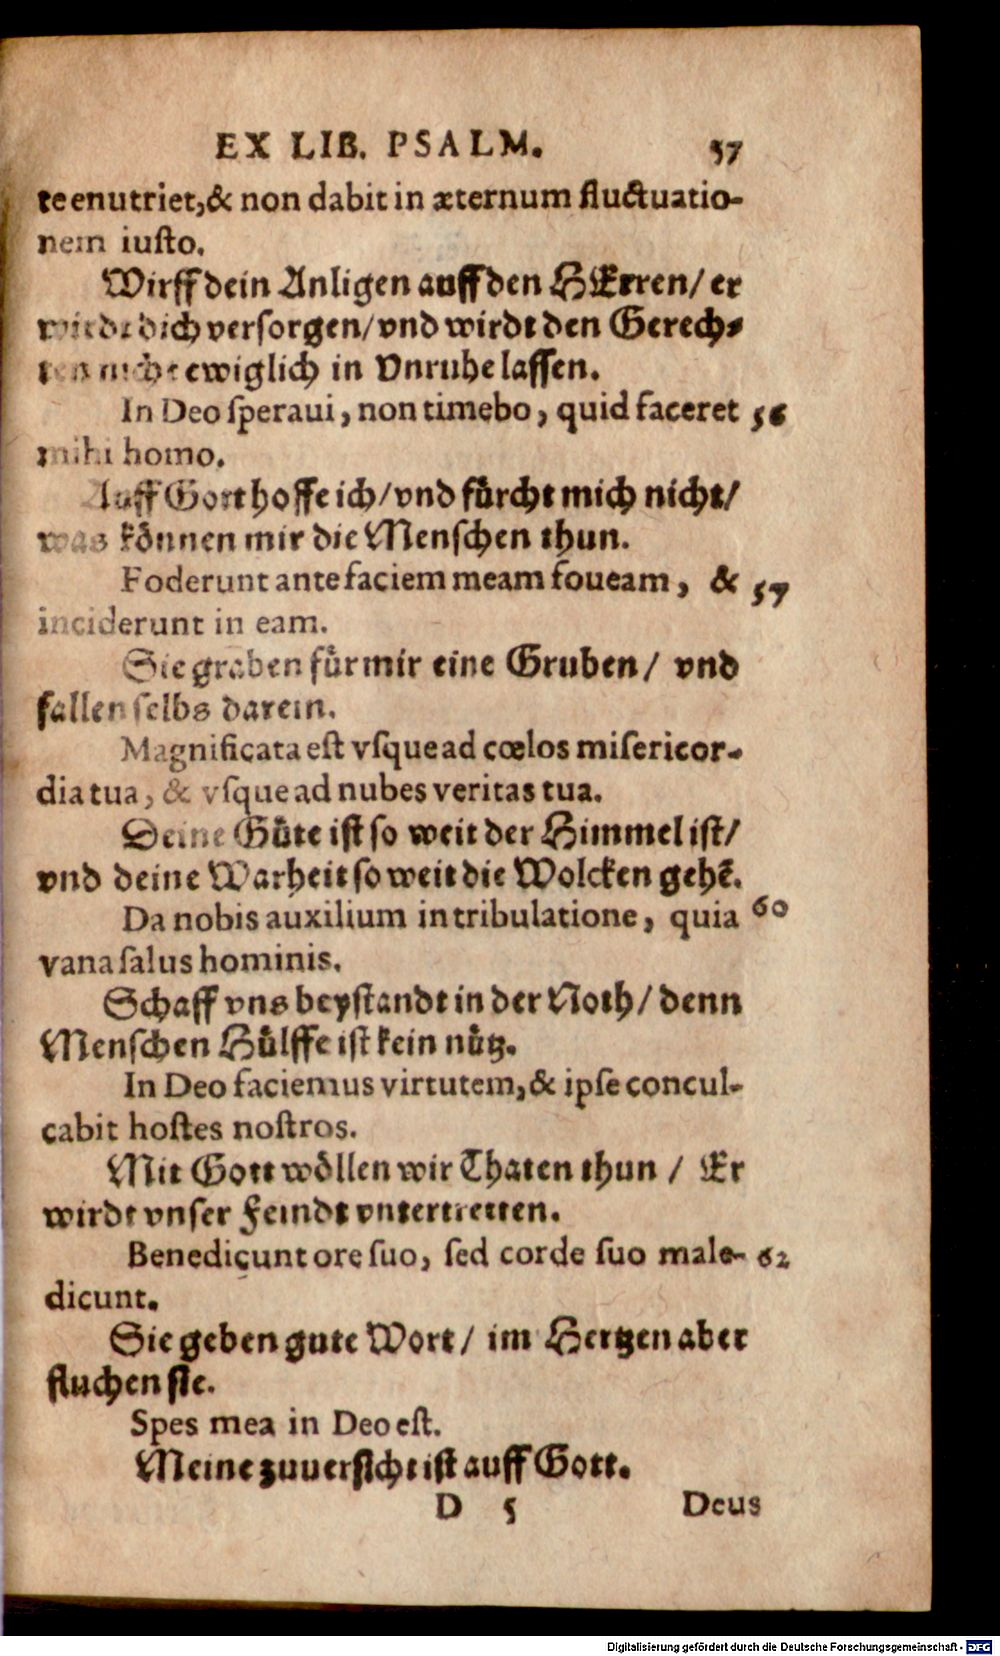 EX LIB. PSALM. 57
te enutriet, & non dabit in æternum fluctuatio-
nem iusto.
Wirff dein Anligen auff den HErren/ er
wirdt dich versorgen/ vnd wirdt den Gerech-
ten nicht ewiglich in Vnruhe lassen.
In Deo speraui, non timebo, quid faceret 56
mihi homo.
Auff Gott hoffe ich/ vnd fürcht mich nicht/
was können mir die Menschen thun.
Foderunt ante faciem meam foueam, & 57
inciderunt in eam.
Sie graben für mir eine Gruben/ vnd
fallen selbs darein.
Magnificata est vsque ad cœlos misericor-
dia tua, & vsque ad nubes veritas tua.
Deine Güte ist so weit der Himmel ist/
vnd deine Warheit so weit die Wolcken gehẽ.
Da nobis auxilium in tribulatione, quia 60
vana salus hominis.
Schaff vns beystandt in der Noth/ denn
Menschen Hülffe ist kein nütz.
In Deo faciemus virtutem, & ipse concul-
cabit hostes nostros.
Mit Gott wöllen wir Thaten thun/ Er
wirdt vnser Feindt vntertretten.
Benedicunt ore suo, sed corde suo male- 62
dicunt.
Sie geben gute Wort/ im Hertzen aber
fluchen sie.
Spes mea in Deo est.
Meine zuuersicht ist auff Gott.
D 5 Deus
Digitalisierung gefördert durch die Deutsche Forschungsgemeinschaft - DFG